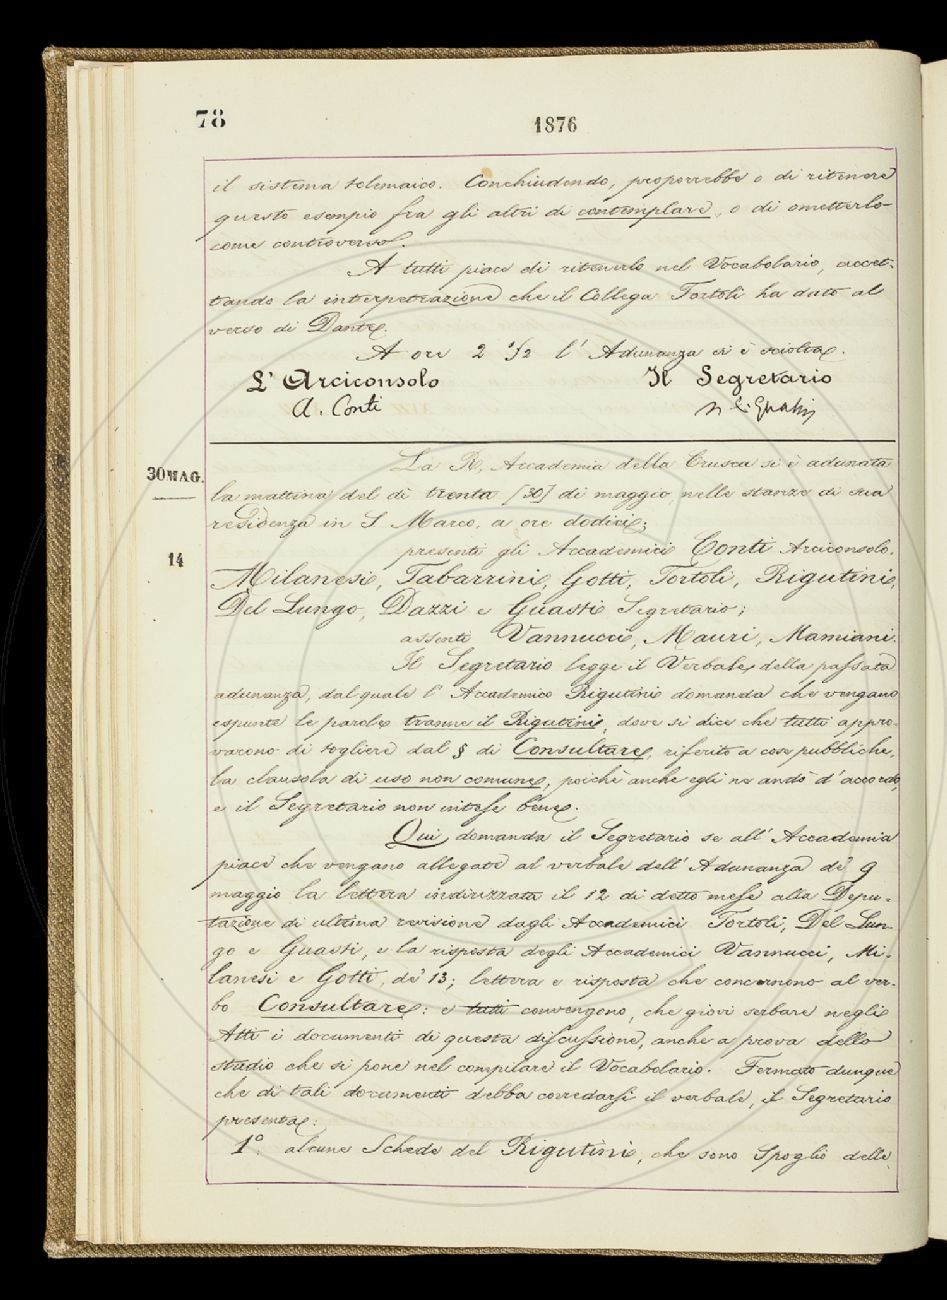 78
1876
il sistema tolemaico. Conchiudendo, proporrebbe o di ritenere
questo esempio fra gli altri di contemplare, o di ometterlo
come controverso.
A tutti piace di ritenerlo nel Vocabolario, accet-
tando la interpetrazione che il Collega Tortoli ha dato al
verso di Dante.
A ore 2 1/2 l' Adunanza si è sciolta.
L' Arciconsolo
Il Segretario
A. Conti
30 MAG.
La R. Accademia della Crusca si è adunata
la mattina del dì trenta [30] di maggio nelle stanze di sua
residenza in S. Marco, a ore dodici;
14
presenti gli Accademici Conti Arciconsolo,
Milanesi, Tabarrini, Gotti, Tortoli, Rigutini,
Del Lungo, Dazzi e Guasti Segretario;
assenti Vannucci, Mauri, Mamiani.
Il Segretario legge il Verbale della passata
adunanza, dal quale l' Accademico Rigutini domanda che vengano
espunte le parole tranne il Rigutini, dove si dice che tutti appro-
varono di togliere dal § di Consultare, riferito a cose pubbliche,
la clausola di uso non comune, poichè anche egli ne andò d'accordo,
e il Segretario non intese bene.
Qui domanda il Segretario se all' Accademia
piace che vengano allegate al verbale dell' Adunanza de' 9
maggio la lettera indirizzata il 12 di detto mese alla Depu-
tazione di ultima revisione dagli Accademici Tortoli, Del Lun-
go e Guasti, e la risposta degli Accademici Vannucci, Mi-
lanesi e Gotti, de' 13; lettera e risposta che concernono al ver-
bo Consultare: e tutti convengono, che giovi serbare negli
Atti i documenti di questa discussione, anche a prova dello
studio che si pone nel compilare il Vocabolario. Fermato dunque
che di tali documenti debba corredarsi il verbale, il Segretario
presenta:
1°. alcune Schede del Rigutini, che sono Spoglio delle